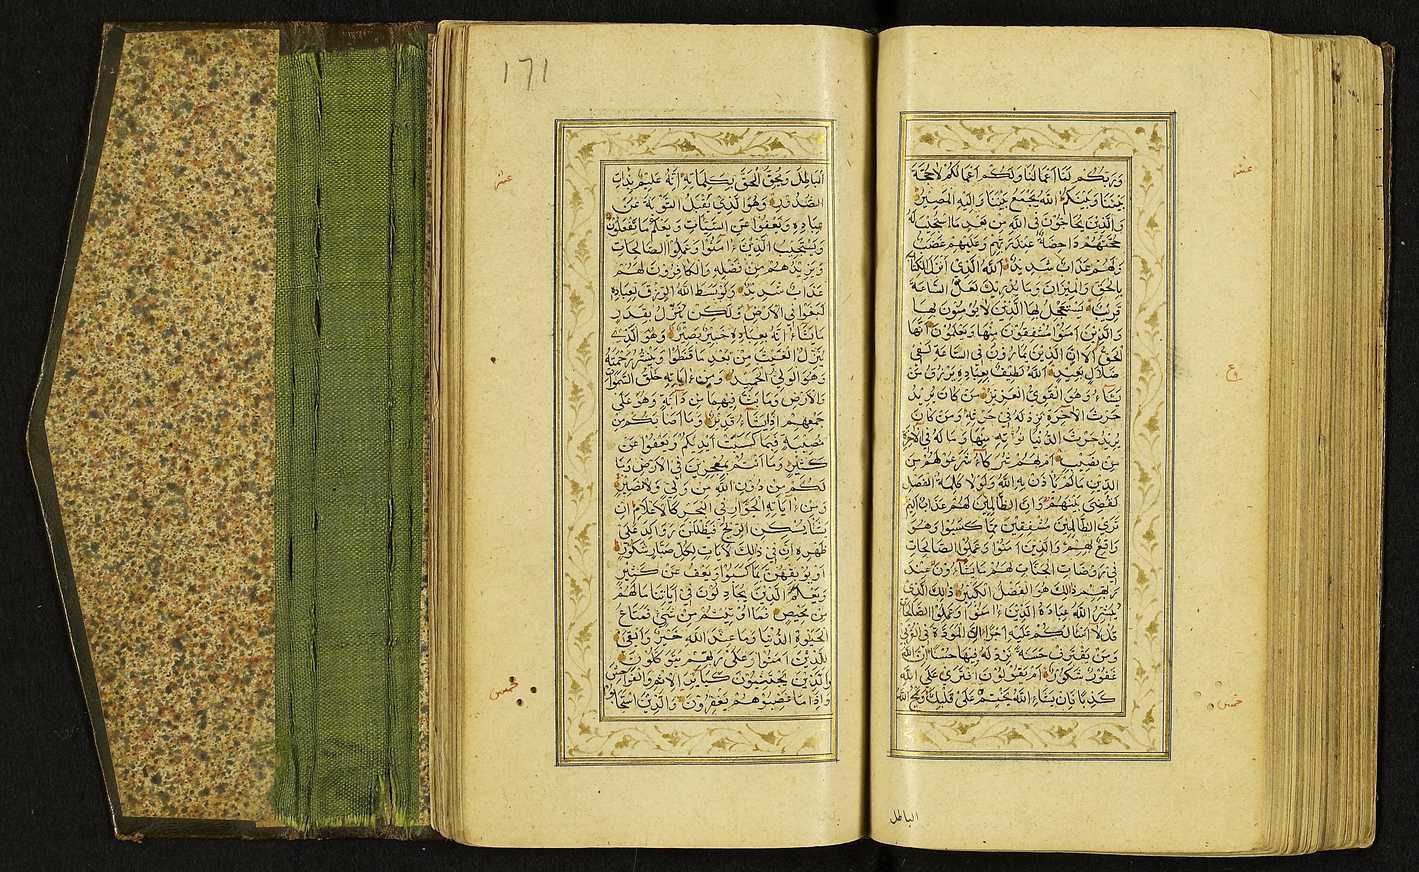 عشر
ع
خمس
وَرَبُّكُمْ لَنَا أَعْمَالُنَا وَلَكُمْ أَعْمَالُكُمْ لَا حُجَّةَ
بَيْنَنَا وَبَيْنَكُمُ اللَّهُ يَجْمَعُ بَيْنَنَا وَإِلَيْهِ الْمَصِيرُ
وَالَّذِينَ يُحَاجُّونَ فِي اللَّهِ مِنْ بَعْدِ مَا اسْتُجِيبَ لَهُ
حُجَّتُهُمْ دَاحِضَةٌ عِنْدَ رَبِّهِمْ وَعَلَيْهِمْ غَضَبٌ
وَلَهُمْ عَذَابٌ شَدِيدٌ اللَّهُ الَّذِي أَنْزَلَ الْكِتَابَ
بِالْحَقِّ وَالْمِيزَانَ وَمَا يُدْرِيكَ لَعَلَّ السَّاعَةَ
قَرِيبٌ يَسْتَعْجِلُ بِهَا الَّذِينَ لَا يُؤْمِنُونَ بِهَا
وَالَّذِينَ آمَنُوا مُشْفِقُونَ مِنْهَا وَيَعْلَمُونَ أَنَّهَا
الْحَقُّ أَلَا إِنَّ الَّذِينَ يُمَارُونَ فِي السَّاعَةِ لَفِي
ضَلَالٍ بَعِيدٍ اللَّهُ لَطِيفٌ بِعِبَادِهِ يَرْزُقُ مَنْ
يَشَاءُ وَهُوَ الْقَوِيُّ الْعَزِيزُ مَنْ كَانَ يُرِيدُ
حَرْثَ الْآخِرَةِ نَزِدْ لَهُ فِي حَرْثِهِ وَمَنْ كَانَ
يُرِيدُ حَرْثَ الدُّنْيَا نُؤْتِهِ مِنْهَا وَمَا لَهُ فِي الْآخِرَةِ
مِنْ نَصِيبٍ أَمْ لَهُمْ شُرَكَاءُ شَرَعُوا لَهُمْ مِنَ
الدِّينِ مَا لَمْ يَأْذَنْ بِهِ اللَّهُ وَلَوْلَا كَلِمَةُ الْفَصْلِ
لَقُضِيَ بَيْنَهُمْ وَإِنَّ الظَّالِمِينَ لَهُمْ عَذَابٌ أَلِيمٌ
تَرَى الظَّالِمِينَ مُشْفِقِينَ مِمَّا كَسَبُوا وَهُوَ
وَاقِعٌ بِهِمْ وَالَّذِينَ آمَنُوا وَعَمِلُوا الصَّالِحَاتِ
فِي رَوْضَاتِ الْجَنَّاتِ لَهُمْ مَا يَشَاؤُنَ عِنْدَ
رَبِّهِمْ ذَالِكَ هُوَ الْفَضْلُ الْكَبِيرُ ذَالِكَ الَّذِي
يُبَشِّرُ اللَّهُ عِبَادَهُ الَّذِينَ آمَنُوا وَعَمِلُوا الصَّالِحَاتِ
قُلْ لَا أَسْئَلُكُمْ عَلَيْهِ أَجْرًا إِلَّا الْمَوَدَّةَ فِي الْقُرْبَى
وَمَنْ يَقْتَرِفْ حَسَنَةً نَزِدْ لَهُ فِيهَا حُسْنًا إِنَّ اللَّهَ
غَفُورٌ شَكُورٌ أَمْ يَقُولُونَ افْتَرَى عَلَى اللَّهِ
كَذِبًا فَإِنْ يَشَاءِ اللَّهُ يَخْتِمْ عَلَى قَلْبِكَ وَيَمْحُ اللَّهُ
الباطل
١٦١
عشر
خمس
الْبَاطِلَ وَيُحِقُّ الْحَقَّ بِكَلِمَاتِهِ إِنَّهُ عَلِيمٌ بِذَاتِ
الصُّدُورِ وَهُوَ الَّذِي يَقْبَلُ التَّوْبَةَ عَنْ
عِبَادِهِ وَيَعْفُوا عَنِ السَّيِّئَاتِ وَيَعْلَمُ مَا تَفْعَلُونَ
وَيَسْتَجِيبُ الَّذِينَ آمَنُوا وَعَمِلُوا الصَّالِحَاتِ
وَيَزِيدُهُمْ مِنْ فَضْلِهِ وَالْكَافِرُونَ لَهُمْ
عَذَابٌ شَدِيدٌ وَلَوْ بَسَطَ اللَّهُ الرِّزْقَ لِعِبَادِهِ
لَبَغَوْا فِي الْأَرْضِ وَلَكِنْ يُنَزِّلُ بِقَدَرٍ
مَا يَشَاءُ إِنَّهُ بِعِبَادِهِ خَبِيرٌ بَصِيرٌ وَهُوَ الَّذِي
يُنَزِّلُ الْغَيْثَ مِنْ بَعْدِ مَا قَنَطُوا وَيَنْشُرُ رَحْمَتَهُ
وَهُوَ الْوَلِيُّ الْحَمِيدُ وَمِنْ آيَاتِهِ خَلْقُ السَّمَوَاتِ
وَالْأَرْضِ وَمَا بَثَّ فِيهِمَا مِنْ دَابَّةٍ وَهُوَ عَلَى
جَمْعِهِمْ إِذَا يَشَاءُ قَدِيرٌ وَمَا أَصَابَكُمْ مِنْ
مُصِيبَةٍ فَبِمَا كَسَبَتْ أَيْدِيكُمْ وَيَعْفُوا عَنْ
كَثِيرٍ وَمَا أَنْتُمْ بِمُعْجِزِينَ فِي الْأَرْضِ وَمَا
لَكُمْ مِنْ دُونِ اللَّهِ مِنْ وَلِيٍّ وَلَا نَصِيرٍ
وَمِنْ آيَاتِهِ الْجَوَارِ فِي الْبَحْرِ كَالْأَعْلَامِ إِنْ
يَشَأْ يُسْكِنِ الرِّيحَ فَيَظْلَلْنَ رَوَاكِدَ عَلَى
ظَهْرِهِ إِنَّ فِي ذَالِكَ لَآيَاتٍ لِكُلِّ صَبَّارٍ شَكُورٍ
أَوْ يُوبِقْهُنَّ بِمَا كَسَبُوا وَيَعْفُ عَنْ كَثِيرٍ
وَيَعْلَمَ الَّذِينَ يُجَادِلُونَ فِي آيَاتِنَا مَا لَهُمْ
مِنْ مَحِيصٍ فَمَا أُوتِيتُمْ مِنْ شَيْءٍ فَمَتَاعُ
الْحَيَوةِ الدُّنْيَا وَمَا عِنْدَ اللَّهِ خَيْرٌ وَأَبْقَى
لِلَّذِينَ آمَنُوا وَعَلَى رَبِّهِمْ يَتَوَكَّلُونَ
وَالَّذِينَ يَجْتَنِبُونَ كَبَائِرَ الْإِثْمِ وَالْفَوَاحِشَ
وَإِذَا مَا غَضِبُوا هُمْ يَغْفِرُونَ وَالَّذِينَ اسْتَجَابُوا